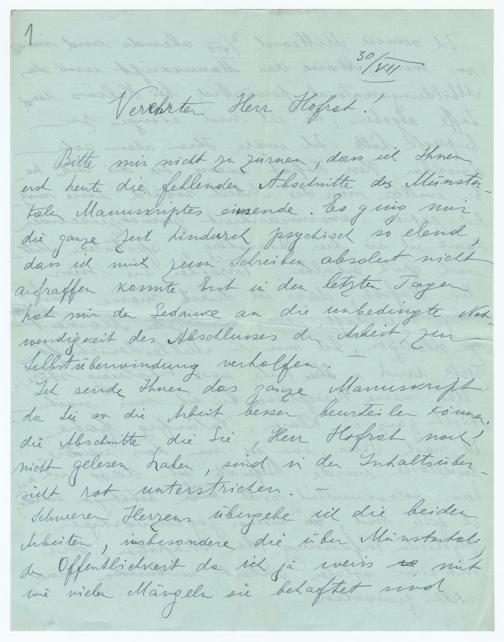 1
30/VII
Verehrter Herr Hofrat!
Bitte mir nicht zu zürnen, dass ich Ihnen
erst heute die fehlenden Abschnitte des Münster-
taler Manuskriptes einsende. Es ging mir
die ganze Zeit hindurch psychisch so elend,
dass ich mich zum Schreiben absolut nicht
aufraffen konnte. Erst in den letzten Tagen
hat mir der Gedanke an die unbedingte Not-
wendigkeit des Abschlusses der Arbeit zur
Selbstüberwindung verholfen.
Ich sende Ihnen das ganze Manuskript
da Sie so die Arbeit besser beurteilen können,
die Abschnitte die Sie, Herr Hofrat noch
nicht gelesen haben, sind in der Inhaltsüber-
sicht rot unterstrichen.
Schweren Herzens übergebe ich die beiden
Arbeiten, insbesondere die über Münstertal,
der Öffentlichkeit da ich ja weiss mit
wie vielen Mängeln sie behaftet sind